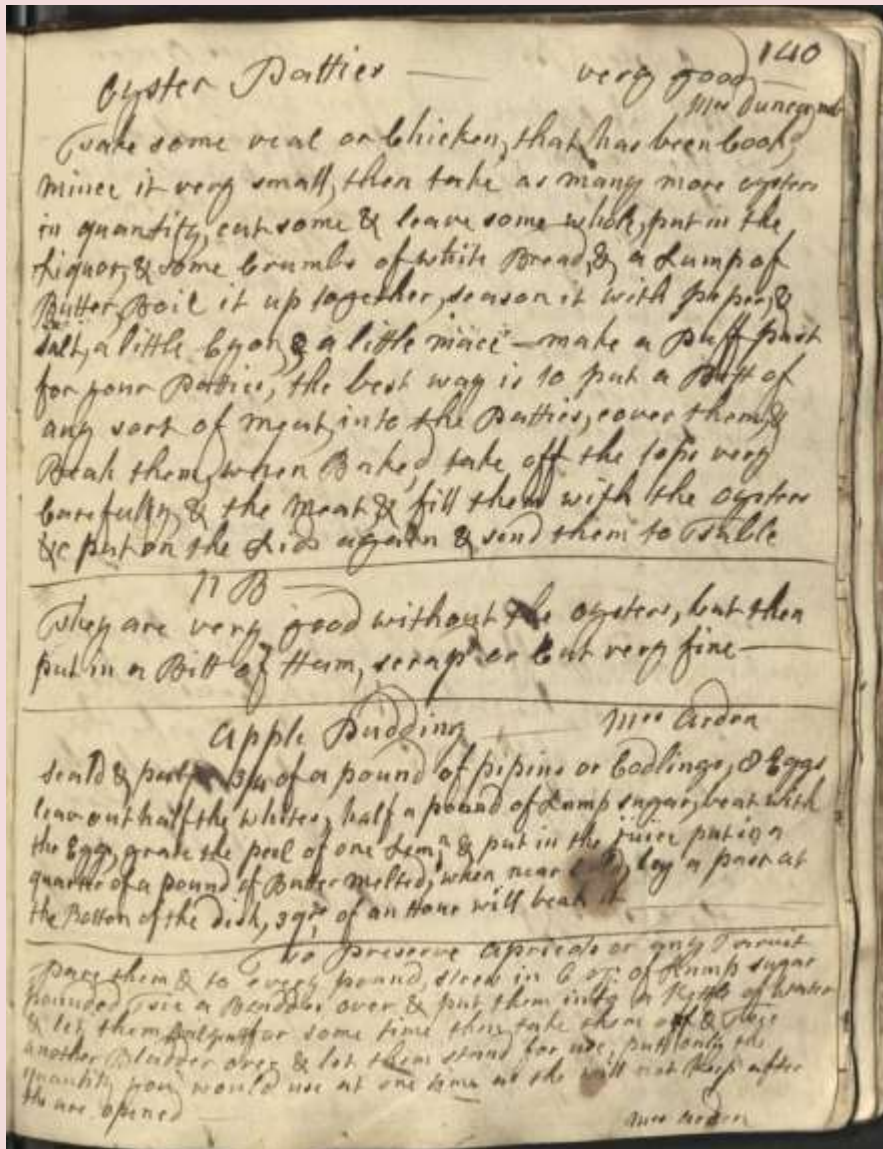 140
Oyster Patties — very good —
Mrs
Take some veal or Chicken, that has been Cook,
mince it very small, then take as many more oysters
in quantity, cut some & leave some whole, put in the
Liquor, & some Crumbs of white Bread, & a Lump of
Butter, Boil it up together, season it with peper, &
Salt, a little Cyon, & a little mace — make a Puff past
for your Patties, the best way is to put a Bitt of
any sort of meat, into the Patties, cover them, &
Beak them, when Baked, take off the tops very
Carefully, & the meat & fill them with the oysters
&c put on the Lids again & send them to Table
N B —
They are very good without the oysters, but then
put in a Bitt of Ham, scrap or Cut very fine —
Apple Pudding — Mrs Arden
Scald & 3/4 of a pound of pipins or Codlings, 8 Eggs
leave out half the whites, half a pound of Lump sugar, beat with
the Eggs, grate the peel of one Lemn & put in the juice put in a
quarter of a pound of Butter melted, when near lay a past at
the Bottom of the dish, 3 qrs of an Hour will beak it —
To Preserve Apricots or any Fruit
pare them & to every pound, strew in 6 oz: of Lump sugar
pounded Tie a Bladder over & put them into a Kettle of water
& let them for some time then take them off & Tye
another Bladder over & let them stand for use, putt only the
quantity you would use at one time as the will not keep after
the are opened
Mrs Arden